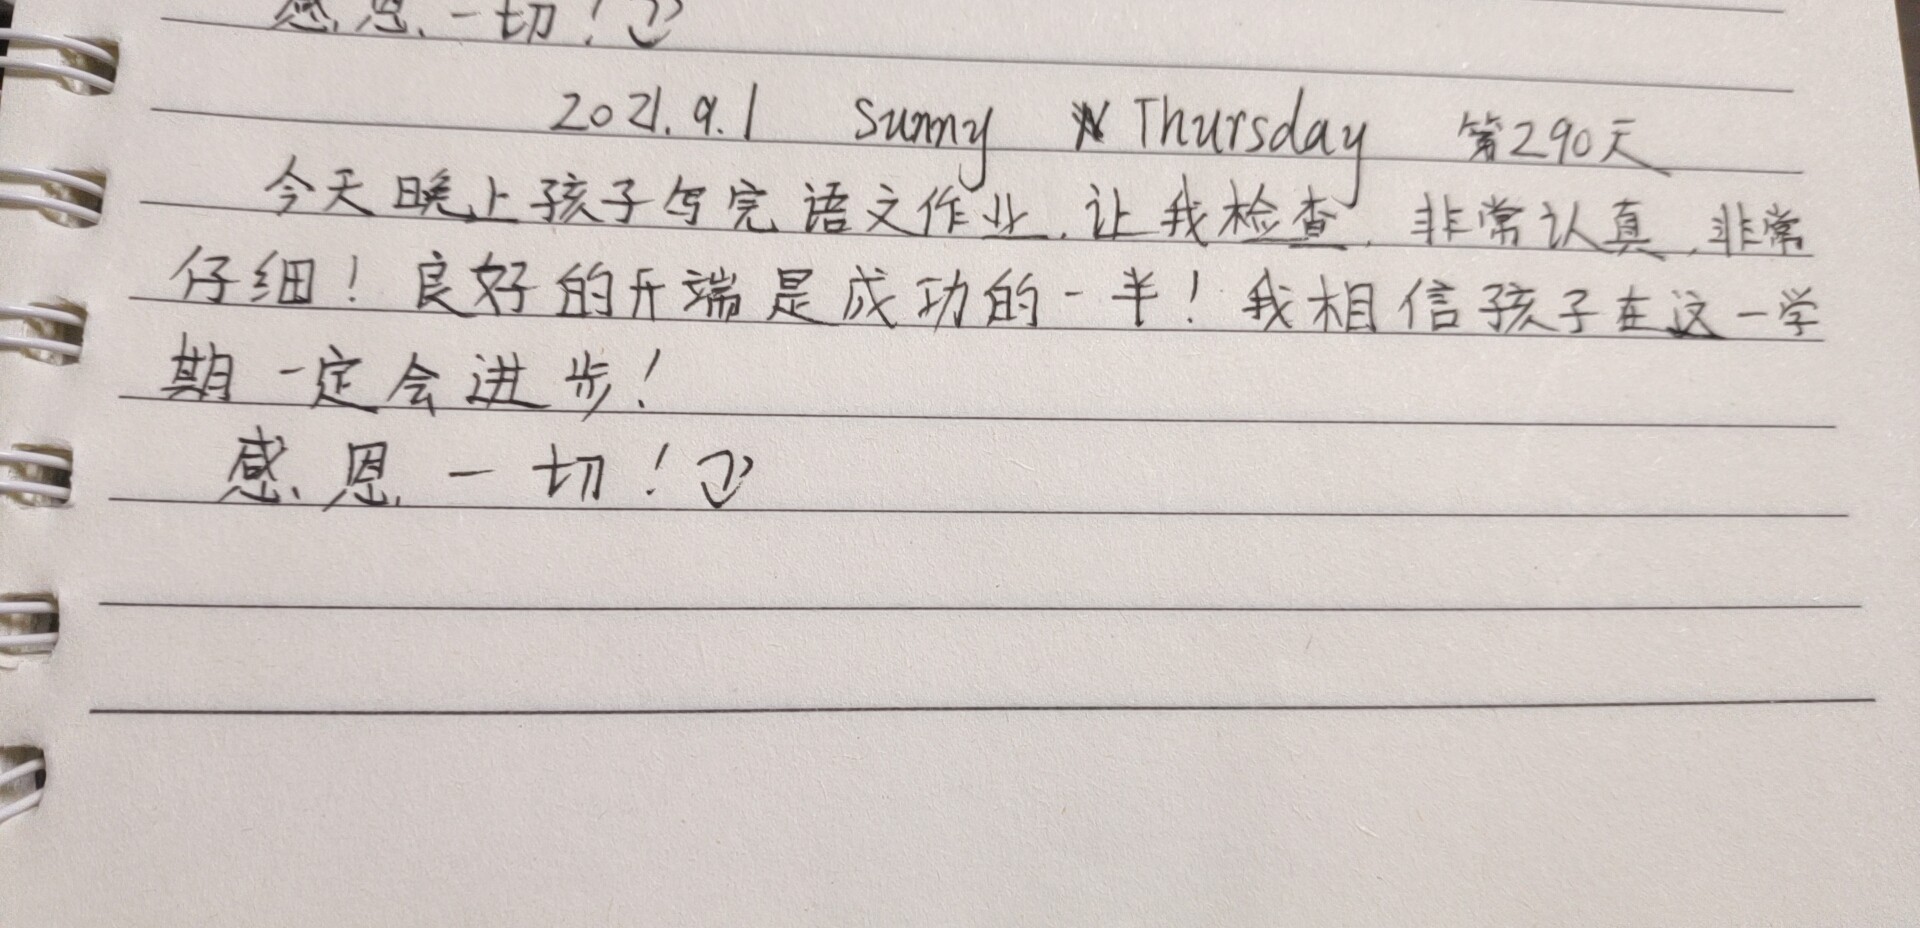 感恩一切！
2021.9.1 Sunny Thursday 第290天
今天晚上孩子写完语文作业，让我检查，非常认真，非常
仔细！良好的开端是成功的一半！我相信孩子在这一学
期一定会进步！
感恩一切！